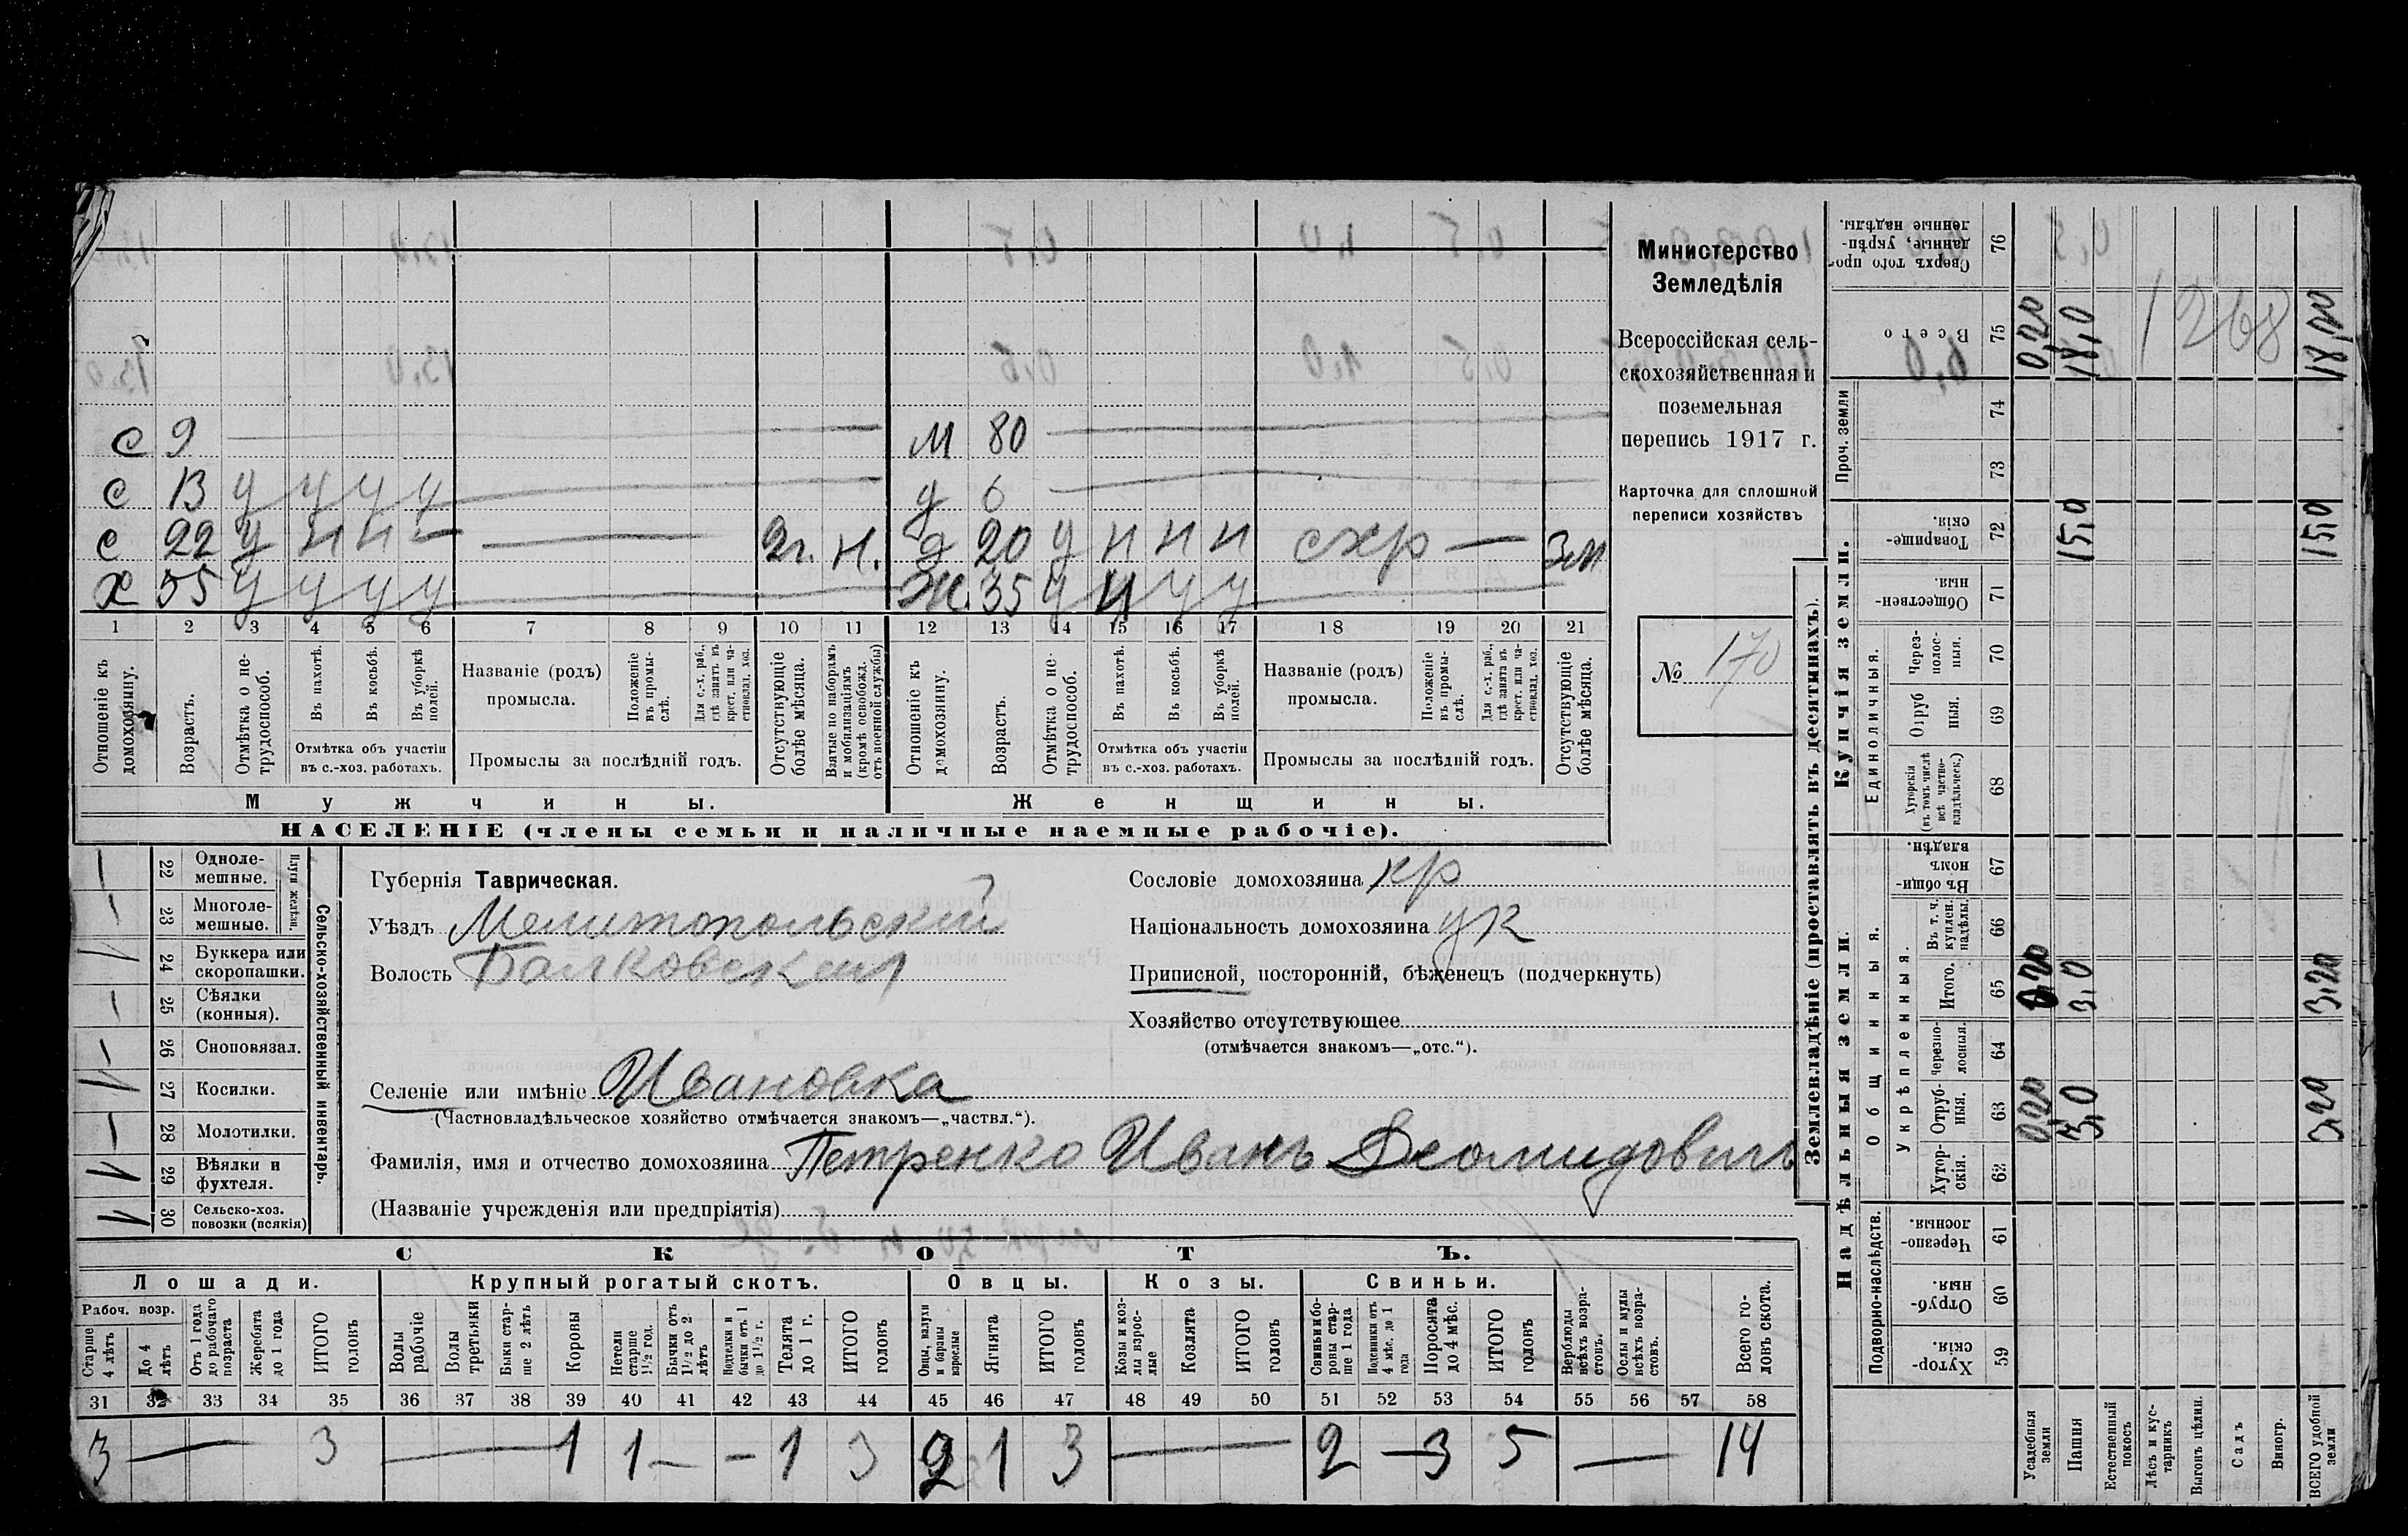 с 9 м 80
с 13 у у у у д 6
с 22 у н н — 2г. н. д 20 у н н н схр — 3м
х 55 у у у у ж. 35 у н у у
1 2 3 4 5 6 7 8 9 10 11 12 13 14 15 16 17 18 19 20 21
Отношеніе къ домохозяину.
Возрастъ.
Отмѣтка о нетрудоспособ.
Въ пахотѣ.
Въ косьбѣ.
Въ уборкѣ полей.
Отмѣтка объ участіи въ с.-хоз. работахъ.
Названіе (родъ) промысла.
Положеніе въ промыслѣ.
Для с.-х. раб., гдѣ занятъ въ крест. или частновлад. хоз.
Промыслы за послѣдній годъ.
Отсутствующіе болѣе мѣсяца.
Взятые по наборамъ и мобилизаціямъ (кромѣ освобожд. отъ военной службы)
Отношеніе къ домохозяину.
Возрастъ.
Отмѣтка о нетрудоспособ.
Въ пахотѣ.
Въ косьбѣ.
Въ уборкѣ полей.
Отмѣтка объ участіи въ с.-хоз. работахъ.
Названіе (родъ) промысла.
Положеніе въ промыслѣ.
Для с.-х. раб., гдѣ занятъ въ крест. или частновлад. хоз.
Промыслы за послѣдній годъ.
Отсутствующіе болѣе мѣсяца.
Мужчины.
Женщины.
НАСЕЛЕНІЕ (члены семьи и наличные наемные рабочіе).
Министерство
Земледѣлія
Всероссійская сель-
скохозяйственная и
поземельная
перепись 1917 г.
Карточка для сплошной
переписи хозяйствъ
№ 170
Сельско-хозяйственный инвентарь.
Плуги желѣзн.
22 Однолемешные. —
23 Многолемешные. —
24 Буккера или скоропашки. 1
25 Сѣялки (конныя). —
26 Сноповязал. —
27 Косилки. 1
28 Молотилки. —
29 Вѣялки и фухтеля. 1
30 Сельско-хоз. повозки (всякія) 1
Губернія Таврическая.
Уѣздъ Мелитопольскій
Волость Балковская
Сословіе домохозяина кр
Національность домохозяина ук
Приписной, посторонній, бѣженецъ (подчеркнуть)
Хозяйство отсутствующее
(отмѣчается знакомъ—„отс.“).
Селеніе или имѣніе Ивановка
(Частновладѣльческое хозяйство отмѣчается знакомъ—„частвл.“).
Фамилія, имя и отчество домохозяина Петренко Иванъ Деомидовичъ
(Названіе учрежденія или предпріятія)
СКОТЪ.
Лошади. Крупный рогатый скотъ. Овцы. Козы. Свиньи.
Рабоч. возр.
Старше 4 лѣтъ
До 4 лѣтъ
Отъ 1 года до рабочаго возраста
Жеребята до 1 года
ИТОГО головъ
Волы рабочіе
Волы третьяки
Быки старше 2 лѣтъ
Коровы
Нетели старше 1 1/2 год.
Бычки отъ 1 1/2 до 2 лѣтъ
Подтелки и бычки отъ 1 до 1 1/2 г.
Телята до 1 г.
ИТОГО головъ
Овцы, валухи и бараны взрослые
Ягнята
ИТОГО головъ
Козы и козлы взрослые
Козлята
ИТОГО головъ
Свиньи и боровы старше 1 года
Подсвинки отъ 4 мѣс. до 1 года
Поросята до 4 мѣс.
ИТОГО головъ
Верблюды всѣхъ возрастовъ.
Ослы и мулы всѣхъ возрастовъ.
Всего головъ скота.
31 32 33 34 35 36 37 38 39 40 41 42 43 44 45 46 47 48 49 50 51 52 53 54 55 56 57 58
3 — 3 — 1 1 — — 1 3 2 1 3 — 2 — 3 5 — 14
Землевладѣніе (проставлять въ десятинахъ).
Надѣльныя земли.
Купчія земли.
Проч. земли
Подворно-наслѣдств.
Общинныя.
Укрѣпленныя.
Единоличныя.
Сверхъ того проданные, укрѣпленные надѣлы. 76
Всего 75 0,20 18,0 18,00
1268
74
73
Товарищескія. 72 15,0 15,0
Общественныя. 71
Черезполосныя. 70
Отрубныя. 69
Хуторскія (въ томъ числѣ всѣ частновладѣльческ.) 68
Въ общинномъ владѣн. 67
Въ т. ч. куплен. надѣлы. 66
Итого. 65 0,20 3,0 3,20
Черезполосныя. 64
Отрубныя. 63 0,20 3,0 3,20
Хуторскія. 62
Черезполосныя. 61
Отрубныя. 60
Хуторскія. 59
Усадебныя земли
Пашня
Естественный покосъ
Лѣсъ и кустарникъ
Выгонъ цѣлин.
Садъ
Виногр.
ВСЕГО удобной земли